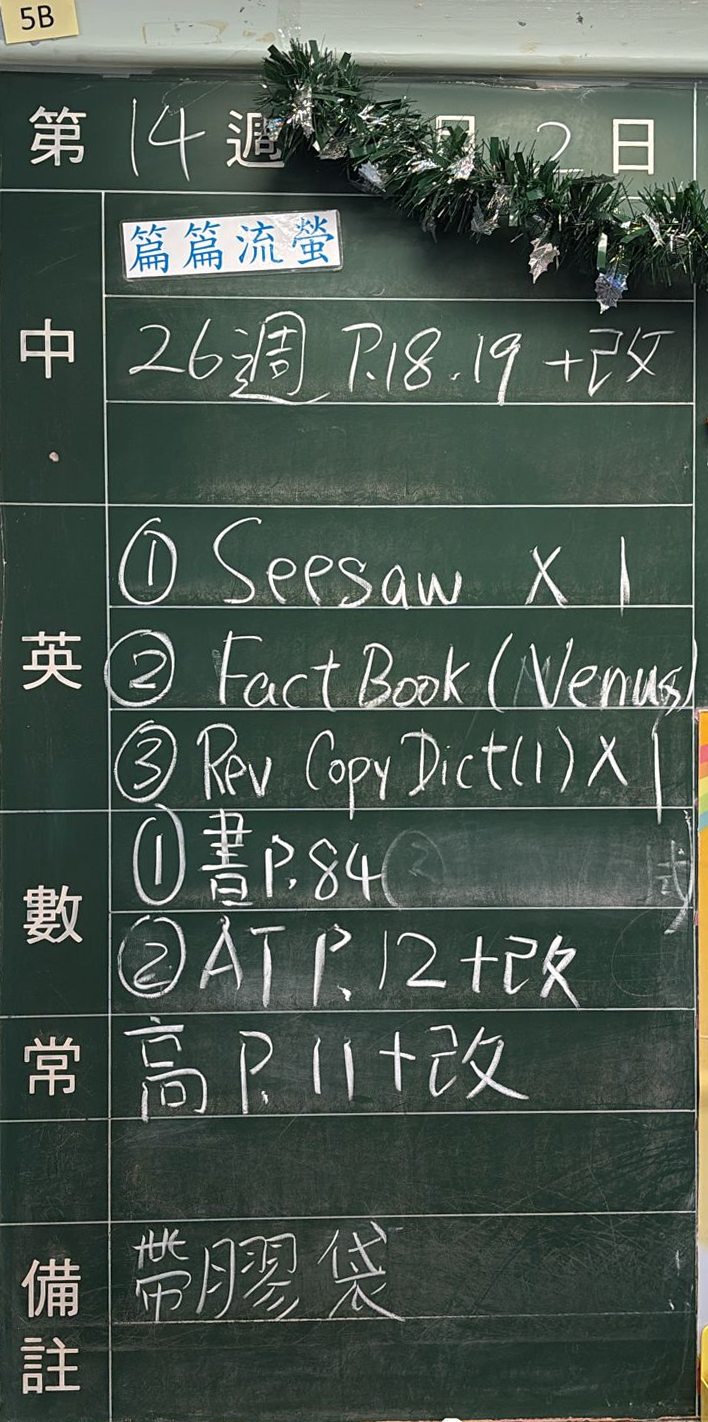 5B
第 14 週 月 2 日
中
篇篇流螢
26週 P.18.19 +改
英
① Seesaw X 1
② Fact Book (Venus)
③ Rev Copy Dict(1) X 1
數
① 書P.84
② AT P. 12 +改
常
高 P. 11 +改
備註
帶膠袋